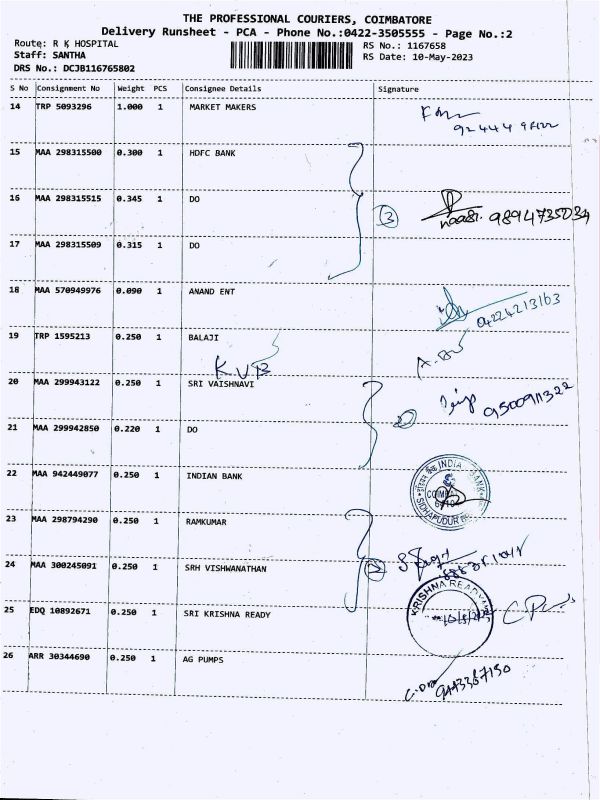 THE PROFESSIONAL COURIERS, COIMBATORE
Delivery Runsheet - PCA - Phone No.:0422-3505555 - Page No.:2
Route: R K HOSPITAL
RS No.: 1167658
Staff: SANTHA
RS Date: 10-May-2023
DRS No.: DCJB116765802
S No Consignment No Weight PCS Consignee Details Signature
14 TRP 5093296 1.000 1 MARKET MAKERS
15 MAA 298315500 0.300 1 HDFC BANK
16 MAA 298315515 0.345 1 DO
3 9894735034
17 MAA 298315509 0.315 1 DO
18 MAA 570949976 0.090 1 ANAND ENT
04224213163
19 TRP 1595213 0.250 1 BALAJI
KVB
20 MAA 299943122 0.250 1 SRI VAISHNAVI
21 MAA 299942850 0.220 1 DO
22 MAA 942449077 0.250 1 INDIAN BANK
INDIAN BANK
SIDHAPUDUR
23 MAA 298794290 0.250 1 RAMKUMAR
24 MAA 300245091 0.250 1 SRH VISHWANATHAN
25 EDQ 10892671 0.250 1 SRI KRISHNA READY
KRISHNA READY
26 ARR 30344690 0.250 1 AG PUMPS
9443367150